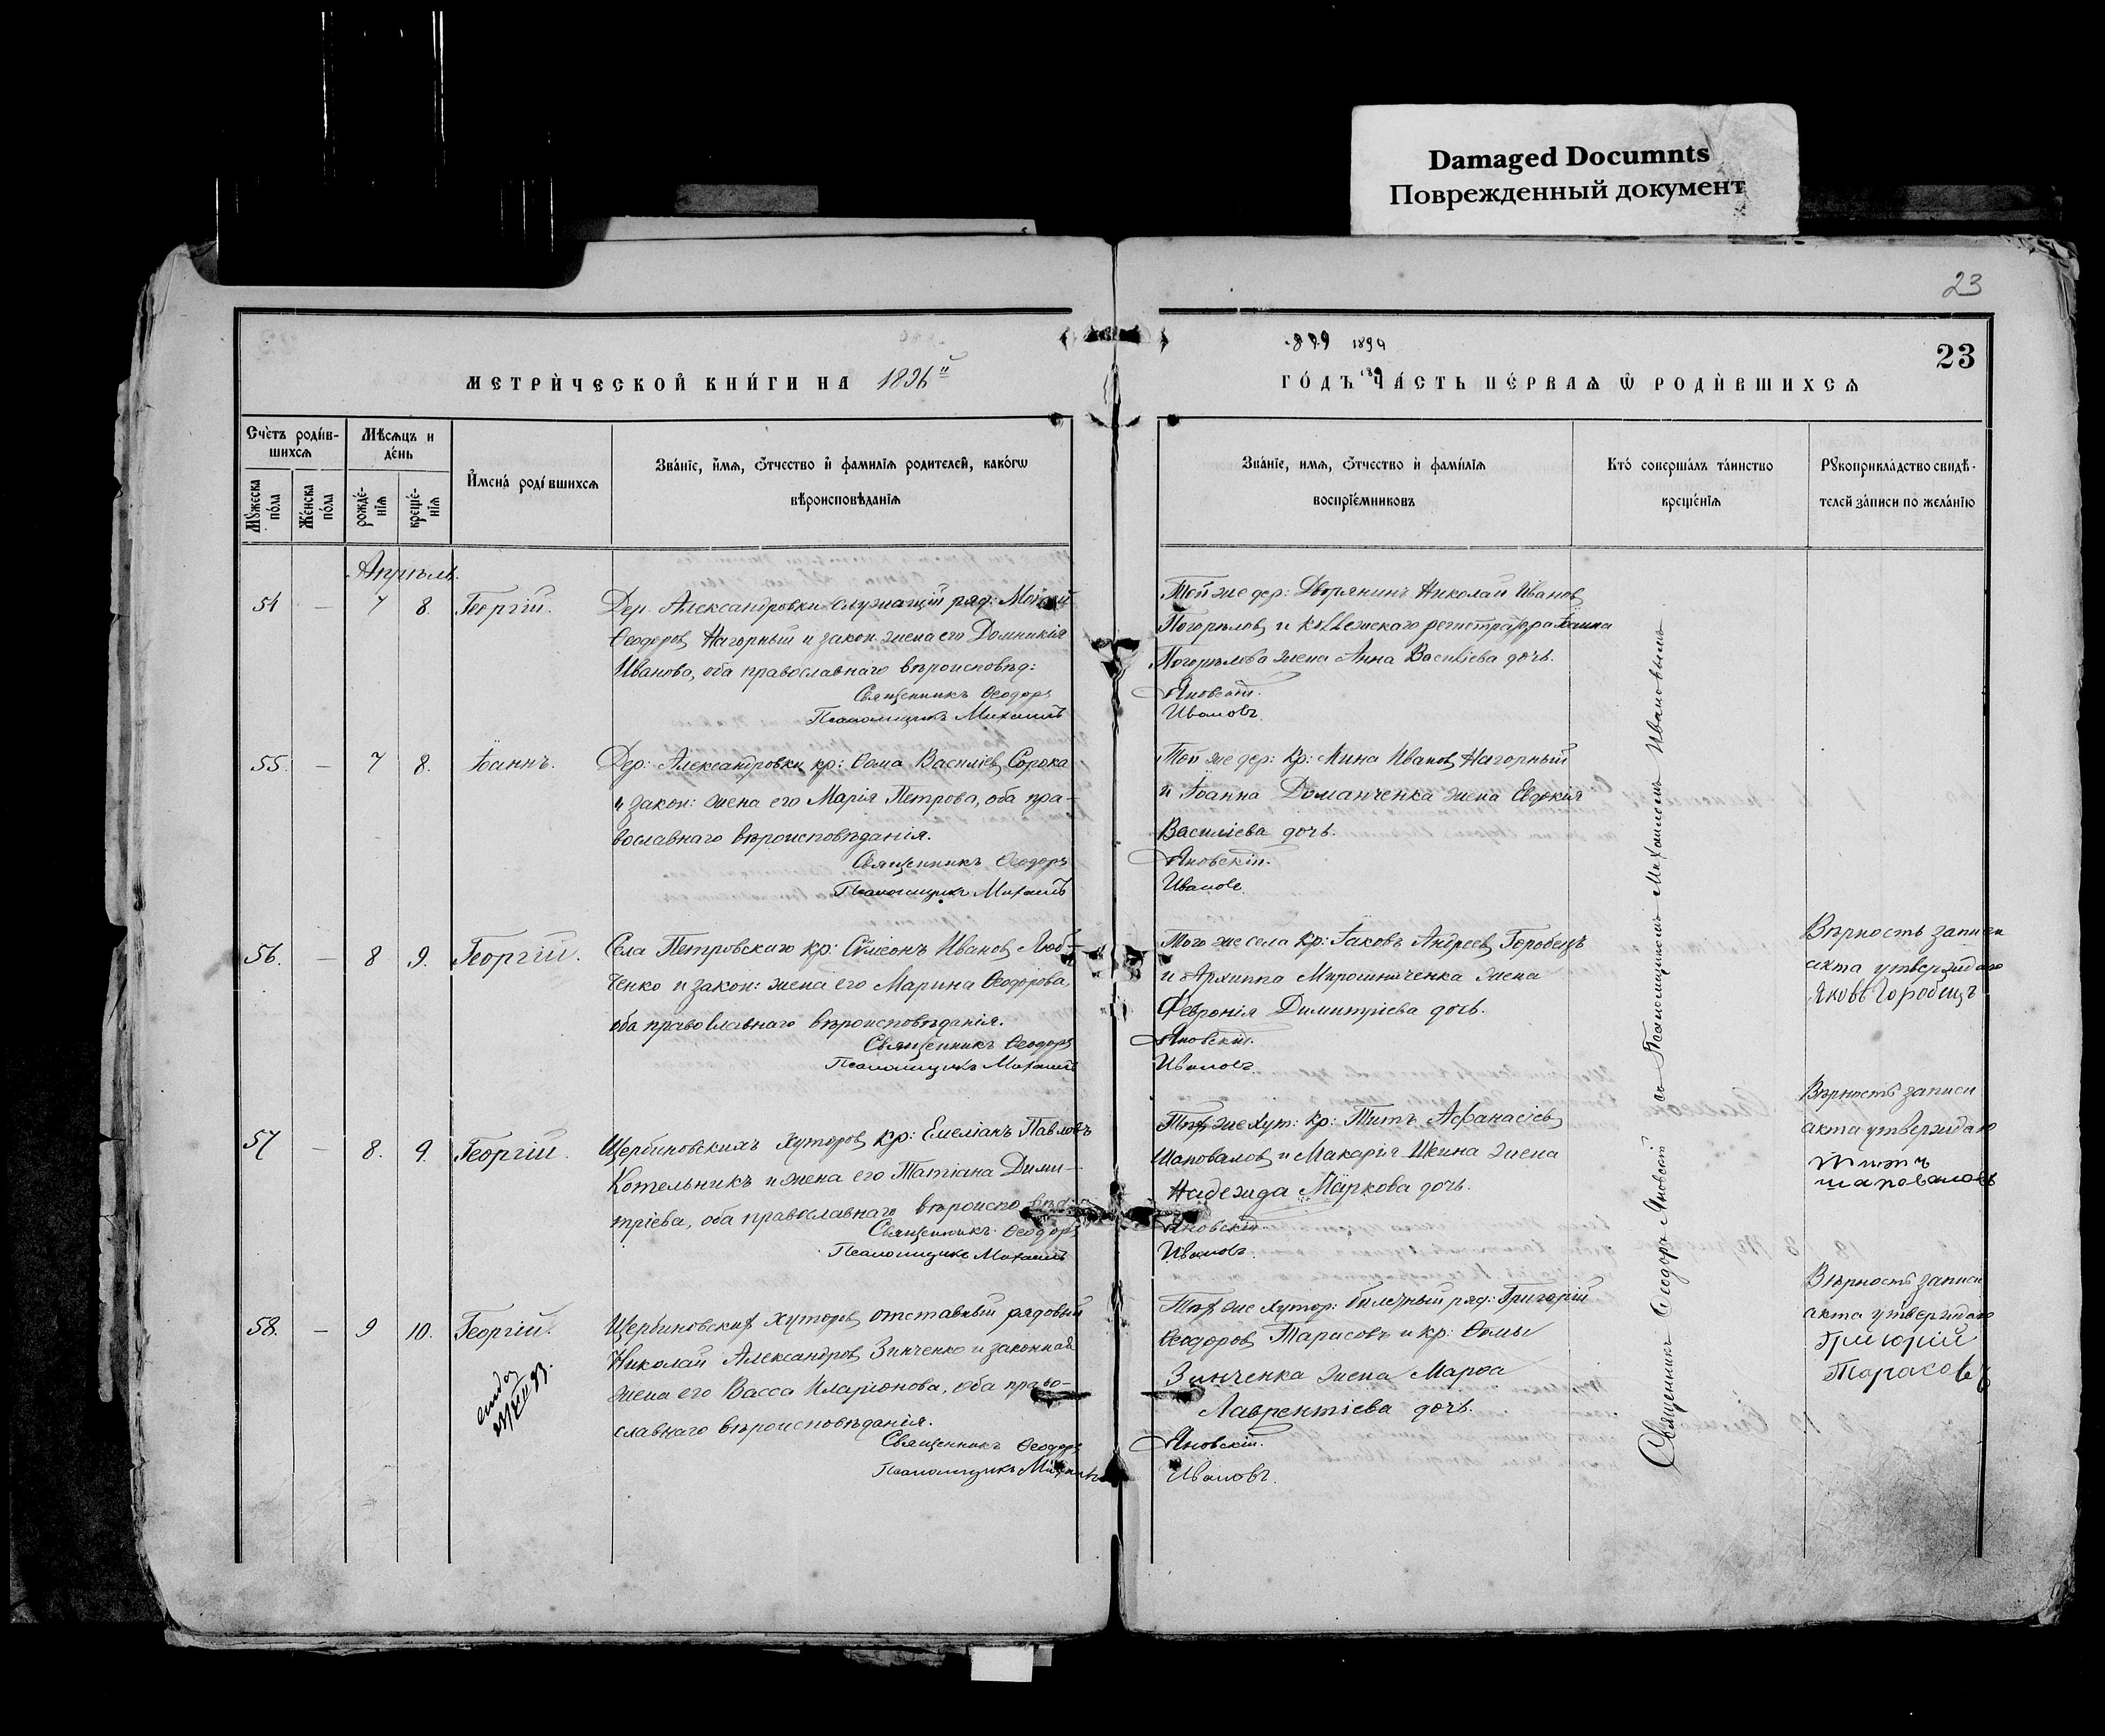 Damaged Documnts
Поврежденный документ
23
23
МЕТРИ́ЧЕСКОЙ КНИ́ГИ НА 1896й
1899 1894
ГО́ДЪ ЧА́СТЬ ПЕ́РВАѦ Ѿ РОДИ́ВШИХСѦ
Сче́тъ роди́в-
шихсѧ
Мѣ́сѧцъ и
де́нь
Мꙋ́жеска
по́ла
Же́нска
по́ла
рожде́-
нїѧ
креще́-
нїѧ
И҆мена̀ роди́вшихсѧ
Зва́нїе, и҆́мѧ, ѻ҆́тчество и҆ фами́лїѧ роди́телей, како́гѡ
вѣроисповѣ́данїѧ
Зва́нїе, и҆́мѧ, ѻ҆́тчество и҆ фами́лїѧ
воспрїе́мниковъ
Кто̀ соверша́лъ та́инство
креще́нїѧ
Рꙋкоприкла́дство свидѣ́-
телей за́писи по жела́нїю
Апрѣль.
54 — 7 8. Георгій.
Дер. Александровки служащій ряд: Мойсей
Ѳеодоровъ Нагорный и закон. жена его Домникія
Иванова, оба православнаго вѣроисповѣд:
Священникъ Ѳеодоръ
Псаломщикъ Михаилъ
Той же дер: Дворянинъ Николай Ивановъ
Погорѣловъ и коллежскаго регистратора Іоанна
Погорѣлова жена Анна Василіева дочь.
Яновскій.
Ивановъ.
55. — 7 8. Іоаннъ.
Дер: Александровки кр: Ѳома Василіевъ Сорока
и закон: жена его Марія Петрова, оба пра-
вославнаго вѣроисповѣданія.
Священникъ Ѳеодоръ
Псаломщикъ Михаилъ
Той же дер: кр: Мина Ивановъ Нагорный
и Іоанна Доманченка жена Евдокія
Василіева дочь.
Яновскій.
Ивановъ.
56. — 8 9. Георгій.
Села Петровскаго кр: Симеонъ Ивановъ Люб-
ченко и закон: жена его Марина Ѳеодорова,
оба православнаго вѣроисповѣданія.
Священникъ Ѳеодоръ
Псаломщикъ Михаилъ
Того же села кр: Іаковъ Андреевъ Горобецъ
и Архиппа Мирошниченка жена
Февронія Димитріева дочь.
Яновскій.
Ивановъ.
Вѣрность записи
акта утверждаю
Яковъ Горобецъ
57 — 8. 9. Георгій.
Щербиновскихъ хуторовъ кр: Емеліанъ Павловъ
Котельникъ и жена его Татіана Дими-
тріева, оба православнаго вѣроисповѣд:
Священникъ Ѳеодоръ
Псаломщикъ Михаилъ
Тѣхъ же хут: кр: Титъ Аѳанасіевъ
Шаповаловъ и Макарія Шеина жена
Надежда Маркова дочь.
Яновскій.
Ивановъ.
Вѣрность записи
акта утверждаю
Титъ
Шаповаловъ
58. — 9 10. Георгій.
Щербиновскихъ хуторовъ отставный рядовый
Николай Александровъ Зинченко и законная
жена его Васса Иларіонова, оба право-
славнаго вѣроисповѣданія.
Священникъ Ѳеодоръ
Псаломщикъ Михаилъ
Тѣхъ же хутор: билетный ряд: Григорій
Ѳеодоровъ Тарасовъ и кр: Ѳомы
Зинченка жена Марѳа
Лаврентіева дочь.
Яновскій.
Ивановъ.
Вѣрность записи
акта утверждаю
Григорій
Тарасовъ
Священникъ Ѳеодоръ Яновскій со Псаломщикомъ Михаиломъ Ивановымъ